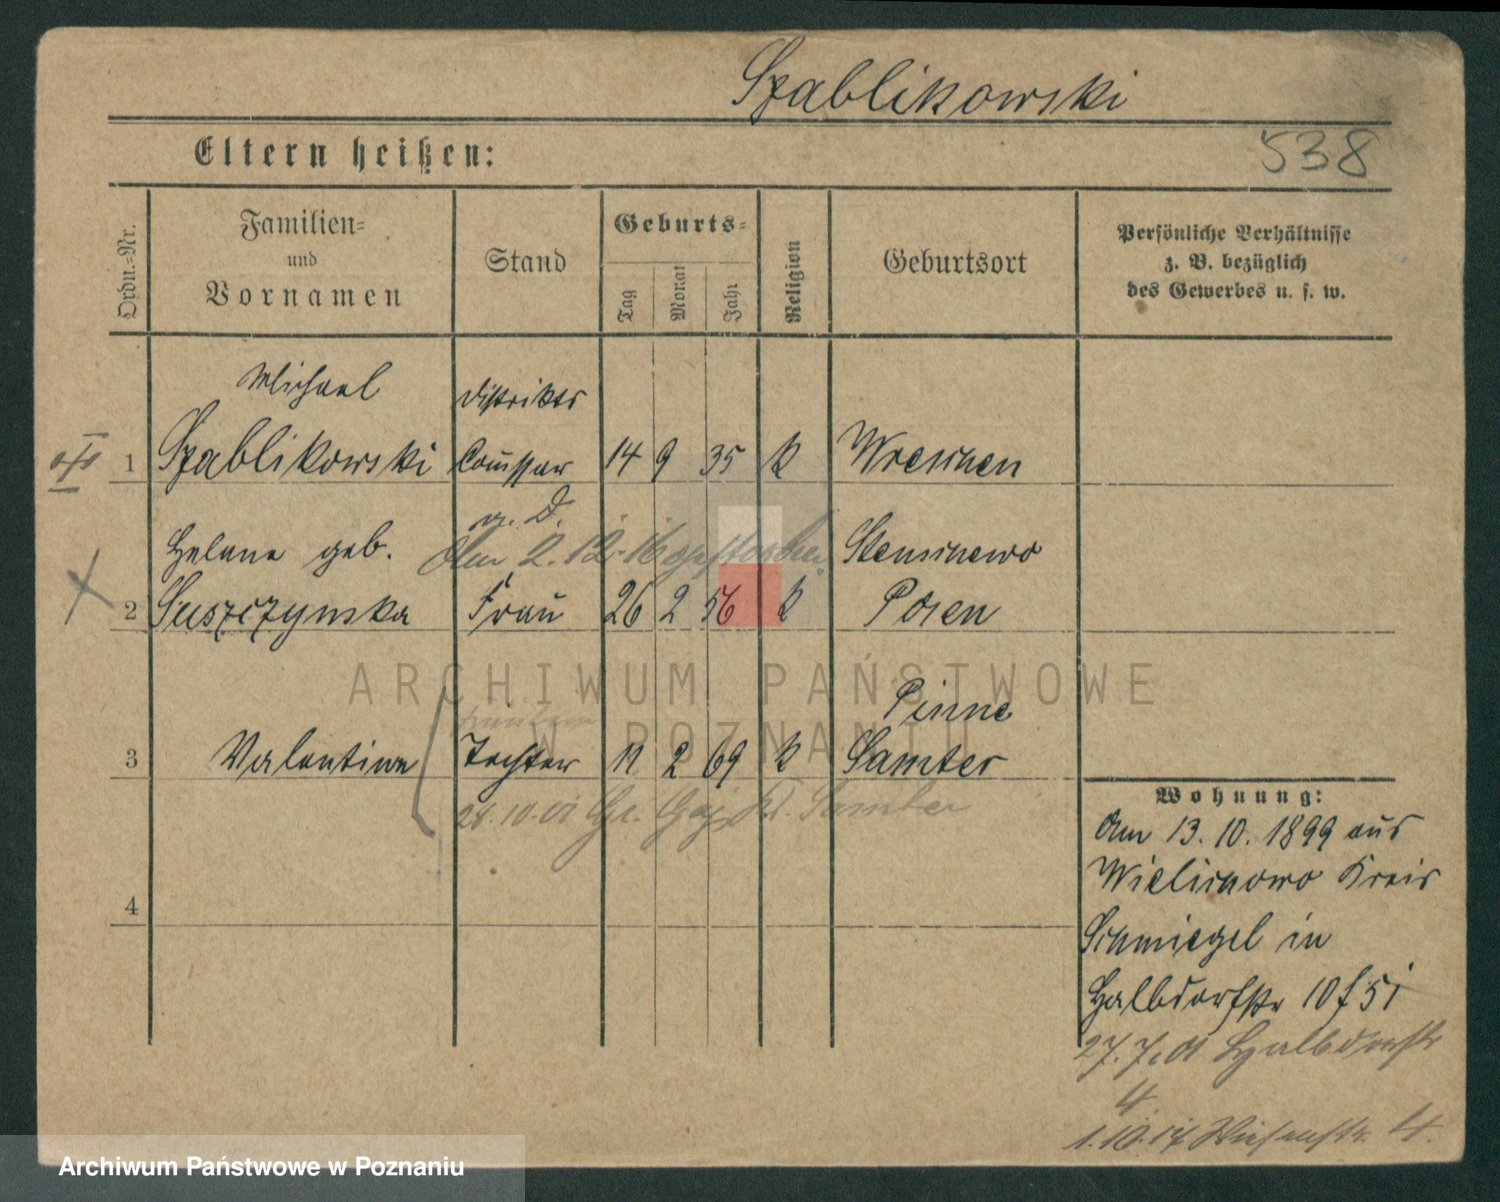 Szablikowski
538
Eltern heißen:
Ordn.-Nr.
Familien-
und
Vornamen
Stand
Geburts-
Tag
Monat
Jahr
Religion
Geburtsort
Persönliche Verhältnisse
z. B. bezüglich
des Gewerbes u. s. w.
Michael
Distrikts
1 Szablikowski Com̅issar 14 9 35 k Wreschen
a. D.
Helene geb. Am 2.12.16 gestorben Stenschewo
2 Suszczynska Frau 26 2 56 k Posen
ARCHIWUM PAŃSTWOWE
W POZNANIU
Pinne
3 Valentine Tochter 11 2 69 k Samter
28.10.01 Gr. Gaj Kr. Samter
4
Wohnung:
Am 13.10.1899 aus
Wielichowo Kreis
Schmiegel in
Halbdorfstr 10 f 5 i
27.7.01 Halbdorfstr
4.
1.10.17 Wiesenstr. 4.
Archiwum Państwowe w Poznaniu